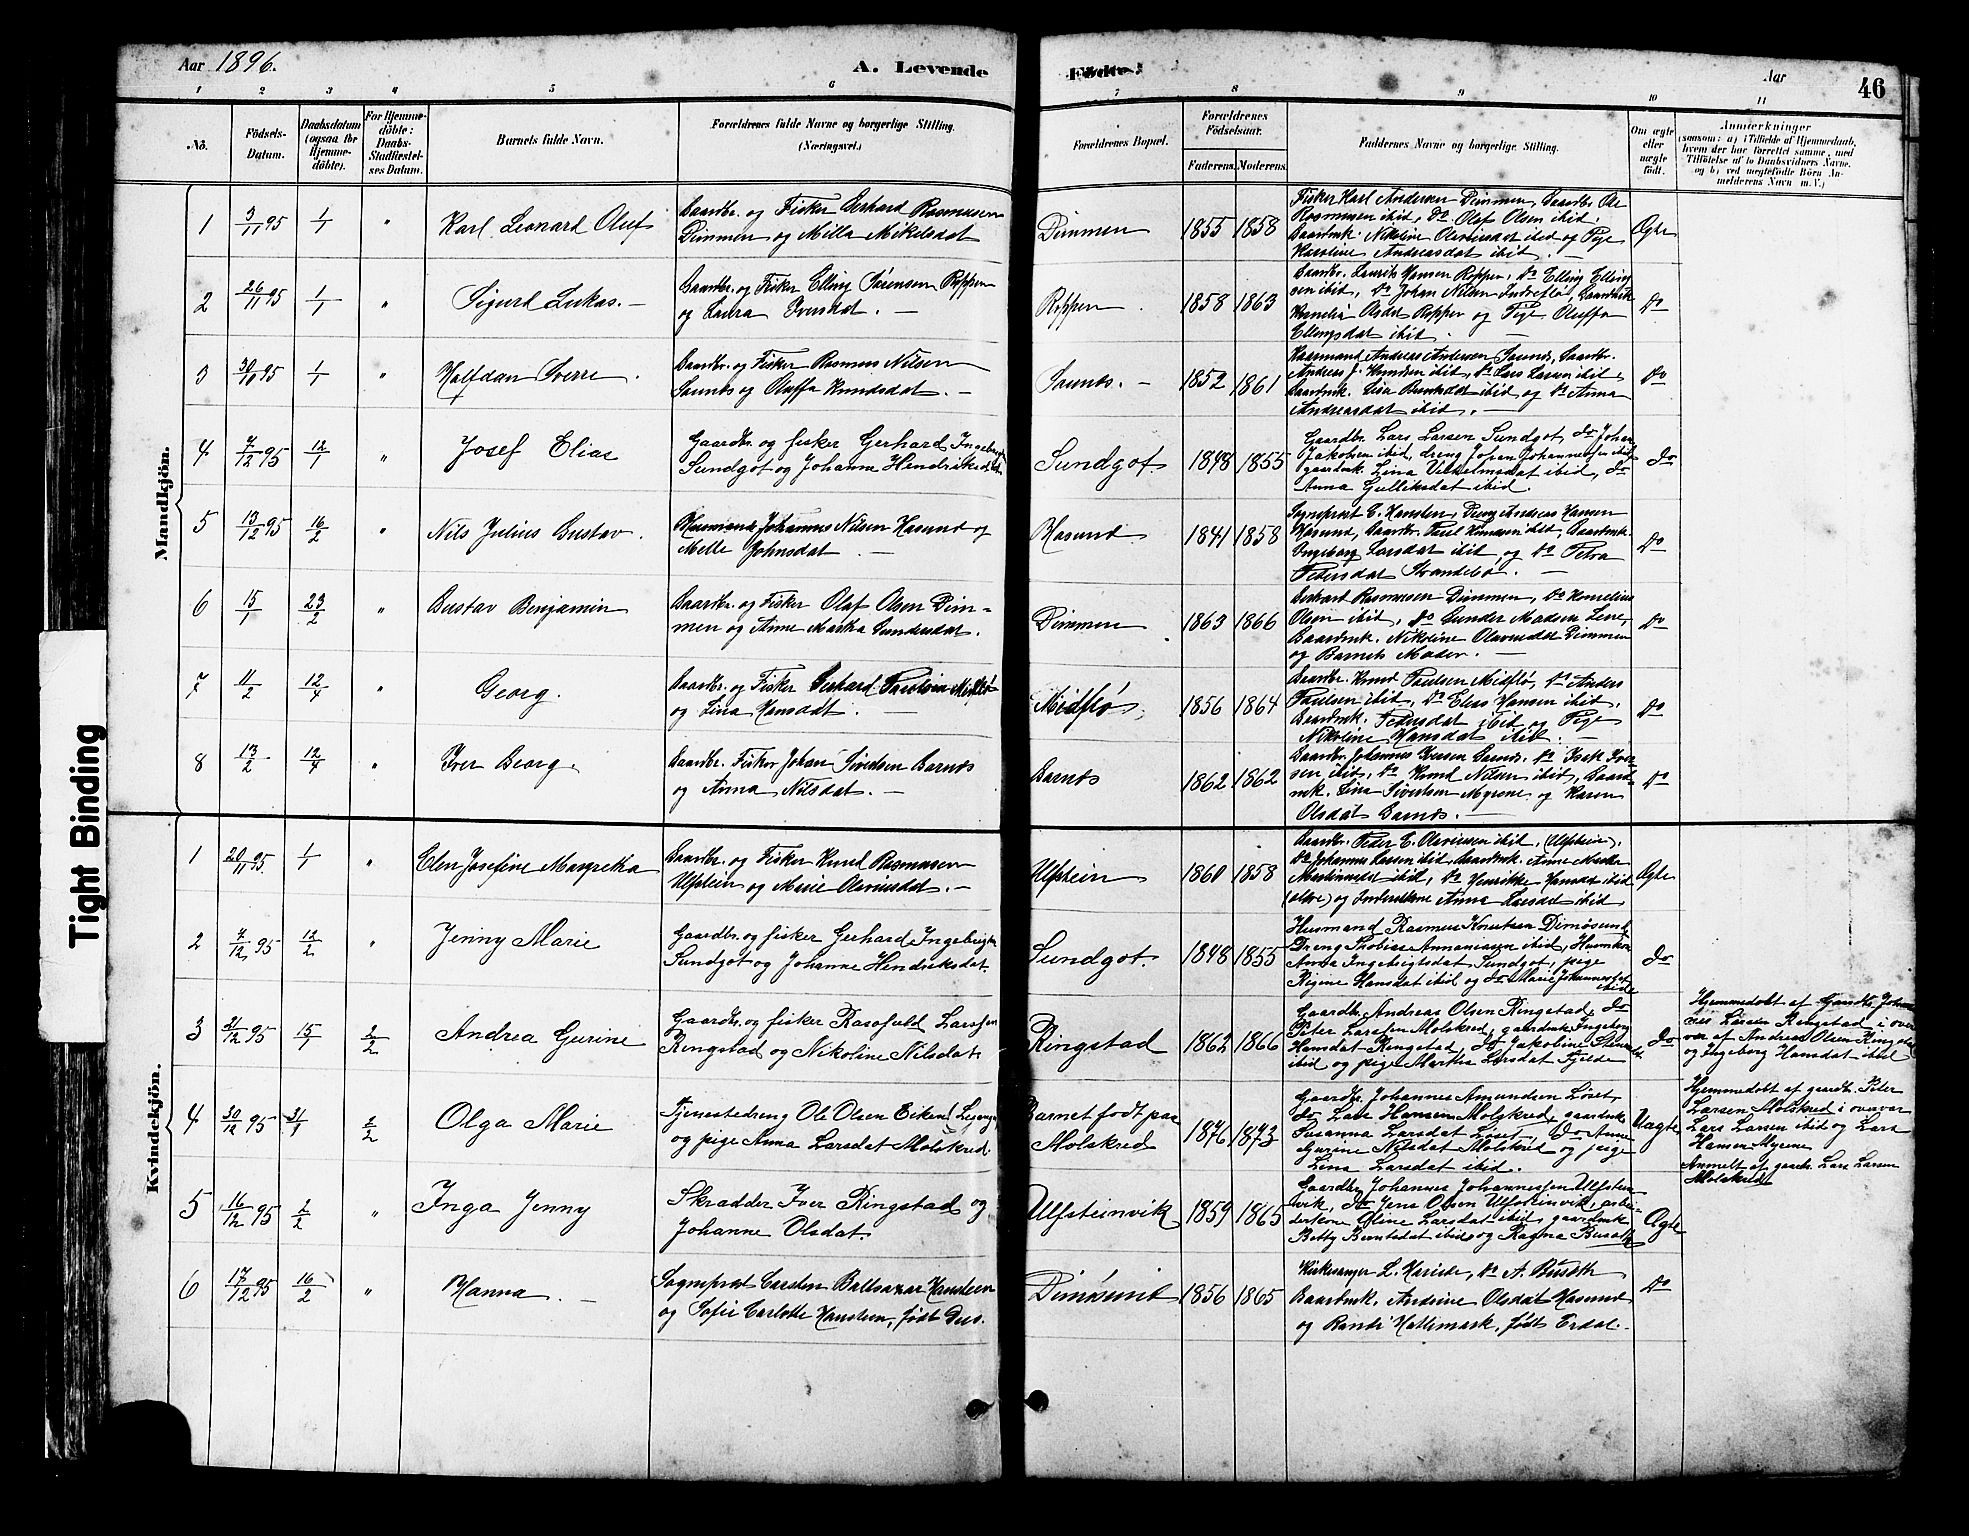 Aar 1896. A. Levende Födte. Aar 46
1 2 3 4 5 6 7 8 9 10 11
No. Födsels-Datum. Daabsdatum (ogsaa for Hjemmedöbte). For Hjemmedöbte: Daabs-Stadfæstelses Datum. Barnets fulde Navn. Forældrenes fulde Navne og borgerlige Stilling. (Næringsvei.) Forældrenes Bopæl. Forældrenes Födselsaar. Faderens. Moderens. Faddernes Navne og borgerlige Stilling. Om ægte eller uægte født. Anmærkninger (saasom: a) i Tilfælde af Hjemmedaab, hvem der har forrettet samme, med Tilföielse af to Daabsvidners Navne, og b) ved uegtefödte Börn Anmelderens Navn m. V.)
Mandkjön.
1 3/11 95 1/1 " Karl Leonard Oluf
Gaardbr. og Fisker Gerhard Rasmusen
Dimmen og Milla Mikelsdat
Dimmen 1855 1858
Fisker Karl Andersen Dimmen, Gaardbr. Ole
Rasmusen ibid, Do. Olaf Olsen ibid.
Gaardmk. Nikoline Olavusdat ibid og Pige
Karoline Andreasdat ibid.
Ægte
2 26/11 95 1/1 " Sigurd Lukas.
Gaardbr. og Fisker Elling Sørensen Røppen
og Laura Iversdat.
Røppen 1858 1863
Gaardbr. Laurik Hansen Røppen, Do Elling Elling
sen ibid, Do Johan Nilsen Indreflø, Gaardmk
Kornelia Olsdat Røppen og Pige Oluffa
Ellingsdat ibid
Do
3 30/10 95 1/1 " Halfdan Sverre.
Gaardbr. og Fisker Rasmus Nilsen
Saunes og Oluffa Knudsdat.
Saunes. 1852 1861
Husmand Andreas Andersen Saunes, Gaardbr.
Andreas J. Knudsen ibid, Do Lars Larsen ibid,
Gaardmk. Lisa ibid og Do Anna
Andreasdat ibid.
Do
4 7/12 95 12/1 " Josef Elias
Gaardbr. og fisker Gerhard Ingebrigts
Sundgot og Johanne Hendriksdat
Sundgot. 1848 1855
Gaardbr. Lars Larsen Sundgot, do Johan
Jakobsen ibid, dreng Johan Johannessen ibid
gaardmk. Lina Vilhelmsdat ibid, do
Anna Gulliksdat ibid.
do
5 13/12 95 16/2 " Nils Julius Gustav.
Husmand Johannes Nilsen Hasund og
Melle Johnsdat
Hasund 1841 1858
Sognepræst C. Hansten, Dreng Andreas Hansen
Hasund, Gaardbr. Paul Knudsen ibid, Gaardmk.
Ingeborg Larsdat ibid, og Do Petra
Petersdat Strandebø.
Do
6 15/1 23/2 " Gustav Benjamin
Gaardbr. og Fisker Olaf Olsen Dim-
men og Anne Martha Gundersdat.
Dimmen 1863 1866
Gerhard Rasmusen Dimmen, Do Kornelius
Olsen ibid, Do Gunder Madsen Lene,
Gaardmk. Nikoline Olavusdat Dimmen
og Barnets Moder.
Do
7 11/2 12/4 " Georg.
Gaardbr. og Fisker Gerhard Paulsen Midflø
og Lina Hansdat.
Midflø 1856 1864
Gaardbr. Knud Paulsen Midflø, Do Anders
Paulsen ibid, Do Elias Hansen ibid,
Gaardmk. Petersdat ibid og Pige
Nikoline Hansdat ibid.
Do
8 13/2 12/4 " Iver Georg.
Gaardbr. Fisker Johan Sivertsen Garnes
og Anna Nilsdat.
Garnes 1862 1862
Gaardbr. Johannes Iversen Garnes, Do Isak Iver-
sen ibid, Do Knud Nilsen ibid, Gaard-
mk. Lina Sivertsen Myrene og Karen
Olsdat Garnes.
Do
Kvindekjön.
1 20/11 95 1/1 " Elen Josefine Margretha
Gaardbr. og Fisker Knud Rasmusen
Ulfstein og Marie Olavusdat.
Ulfstein 1860 1858
Gaardbr. Peter E. Olavusen ibid, (Ulfstein),
Do Johannes Larsen ibid, Gaardmk. Anne Marthe
Martinusdat ibid, Do Henrikke Hansdat ibid
(ældre) og Anna Larsdat ibid
Ægte
2 7/12 95 12/2 " Jenny Marie
Gaardbr. og fisker Gerhard Ingebrigts
Sundgot og Johanne Hendriksdat.
Sundgot. 1848 1855
Husmand Rasmus Knutsen Dimøsund,
Dreng Thobias Annaniasen ibid, Huusmkone
Anna Ingebrigtsdat Sundgot, pige
Rigine Hansdat ibid og do Marie Johannesdat
ibid
do
3 21/12 95 15/1 2/2 Andrea Gurine
Gaardbr. og fisker Larssen
Ringstad og Nikoline Nilsdat.
Ringstad 1862 1866
Gaardbr. Andreas Olsen Ringstad, do
Peter Larssen Molskred, gaardmk Ingeborg
Hansdat Ringstad, do Jakobine
ibid og pige Martha Larsdat Fjelde
do
Hjemmedøbt af Gaardbr. Johan-
nes Larsen Ringstad i over-
vær af Andreas Olsen Ringstad
og Ingeborg Hansdat ibid
4 30/12 95 31/1 2/2 Olga Marie
Tjenestedreng Ole Olsen
og pige Anna Larsdat Molskred.
Barnet født paa
Molskred 1876 1873
Gaardbr. Johannes Amundsen Løset,
do Lars Hansen Molskred, gaardmk
Susanna Larsdat Løset, do Anne
Gurine Nilsdat Molskred og pige
Lina Larsdat ibid.
Uægte
Hjemmedøbt af gaardbr. Peter
Larsen Molskred i overvær
Lars Larsen ibid og Lars
Hansen Myrene
Anmelt af gaardbr. Lars Larsen
Molskred
5 16/12 95 2/2 " Inga Jenny
Skrædder Iver Ringstad og
Johanne Olsdat.
Ulfsteinvik 1859 1865
Gaardbr. Johannes Johannessen Ulfstein-
vik, do Jens Olsen Ulfsteinvik,
Oline Larsdat ibid, gaardmk
Betty Berntsdat ibid og Ragna Busøth
Ægte
6 17/12 95 16/2 " Hanna.
Sognepræst Carsten Baltsazar Hansteen
og Sofie Carlotte Hansteen, født Dues.
Dimøsund 1856 1865
Kirkesanger L. Hareide, Do A. Busøth
Gaardmk. Andrine Olsdat Hasund
og Randi Hattemark, født Erdal.
Do
Tight Binding